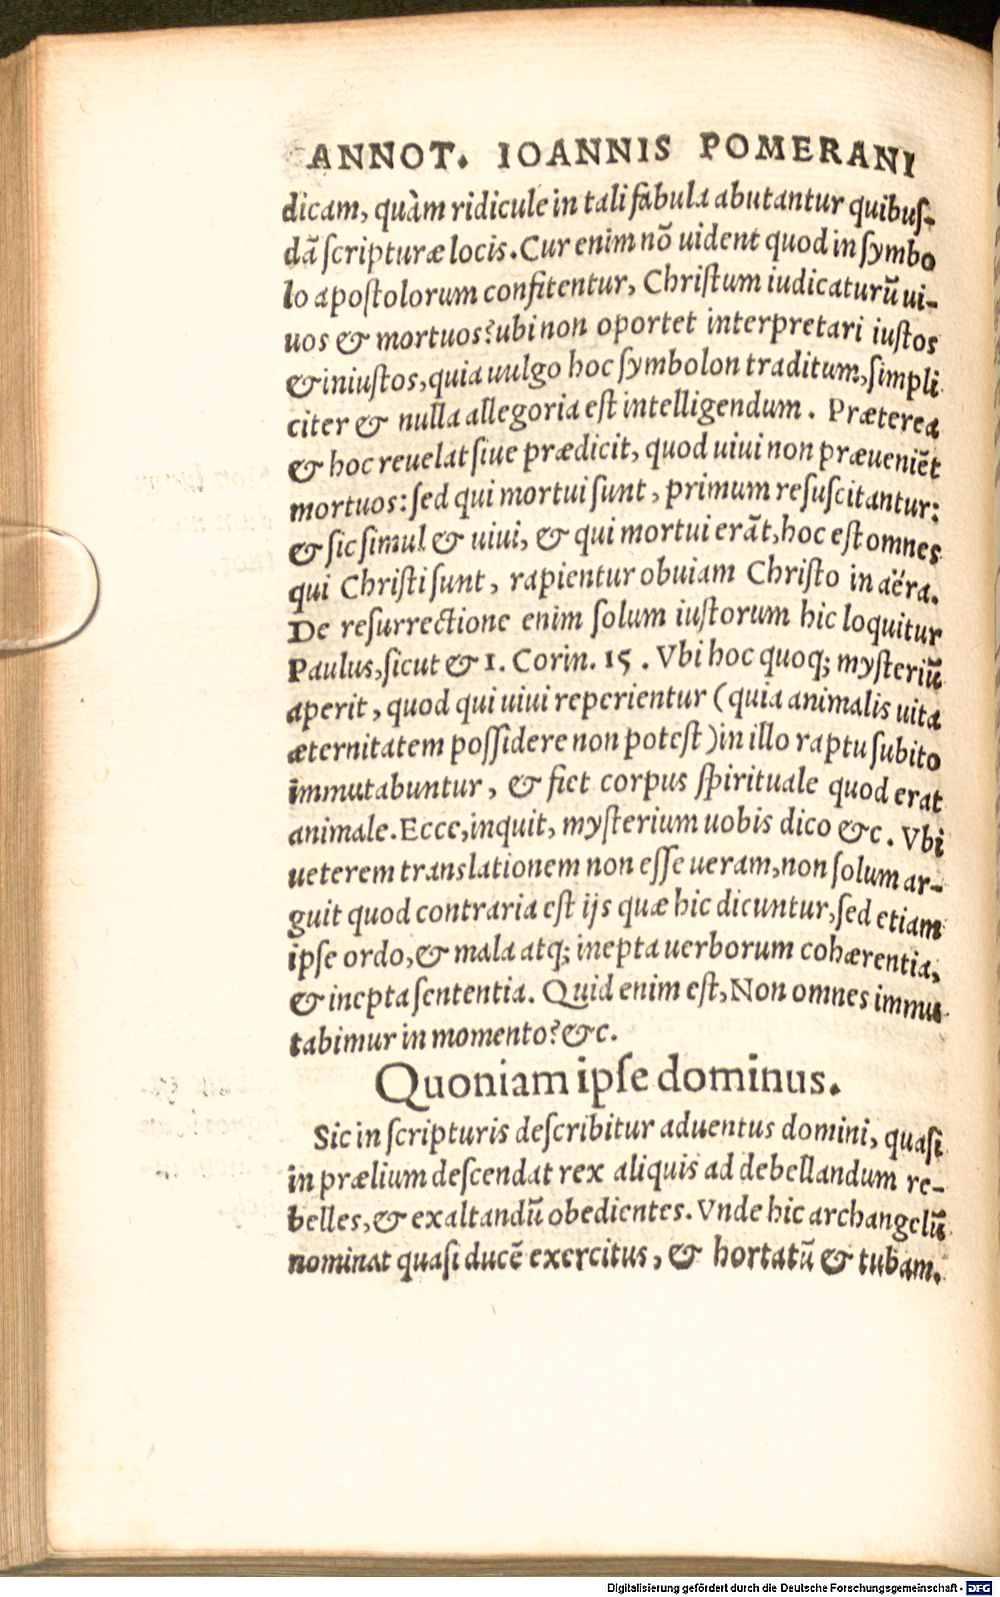 ANNOT. IOANNIS POMERANI
dicam, quàm ridicule in tali fabula abutantur quibuſ-
dã ſcripturæ locis. Cur enim nõ uident quod in ſymbo
lo apoſtolorum confitentur, Chriſtum iudicaturũ ui-
uos & mortuos? ubi non oportet interpretari iuſtos
& iniuſtos, quia uulgo hoc ſymbolon traditum, ſimpli
citer & nulla allegoria eſt intelligendum. Præterea
& hoc reuelat ſiue prædicit, quod uiui non præueniẽt
mortuos: ſed qui mortui ſunt, primum reſuſcitantur:
& ſic ſimul & uiui, & qui mortui erãt, hoc eſt omnes
qui Chriſti ſunt, rapientur obuiam Chriſto in aëra.
De reſurrectione enim ſolum iuſtorum hic loquitur
Paulus, ſicut & 1. Corin. 15. Vbi hoc quoq; myſteriũ
aperit, quod qui uiui reperientur (quia animalis uita
æternitatem poſſidere non poteſt) in illo raptu ſubito
immutabuntur, & fiet corpus ſpirituale quod erat
animale. Ecce, inquit, myſterium uobis dico &c. Vbi
ueterem translationem non eſſe ueram, non ſolum ar-
guit quod contraria eſt ijs quæ hic dicuntur, ſed etiam
ipſe ordo, & mala atq; inepta uerborum cohærentia,
& inepta ſententia. Quid enim eſt, Non omnes immu
tabimur in momento? &c.
Quoniam ipſe dominus.
Sic in ſcripturis deſcribitur aduentus domini, quaſi
in prælium deſcendat rex aliquis ad debellandum re-
belles, & exaltandũ obedientes. Vnde hic archangelũ
nominat quaſi ducẽ exercitus, & hortatũ & tubam.
Digitalisierung gefördert durch die Deutsche Forschungsgemeinschaft - DFG